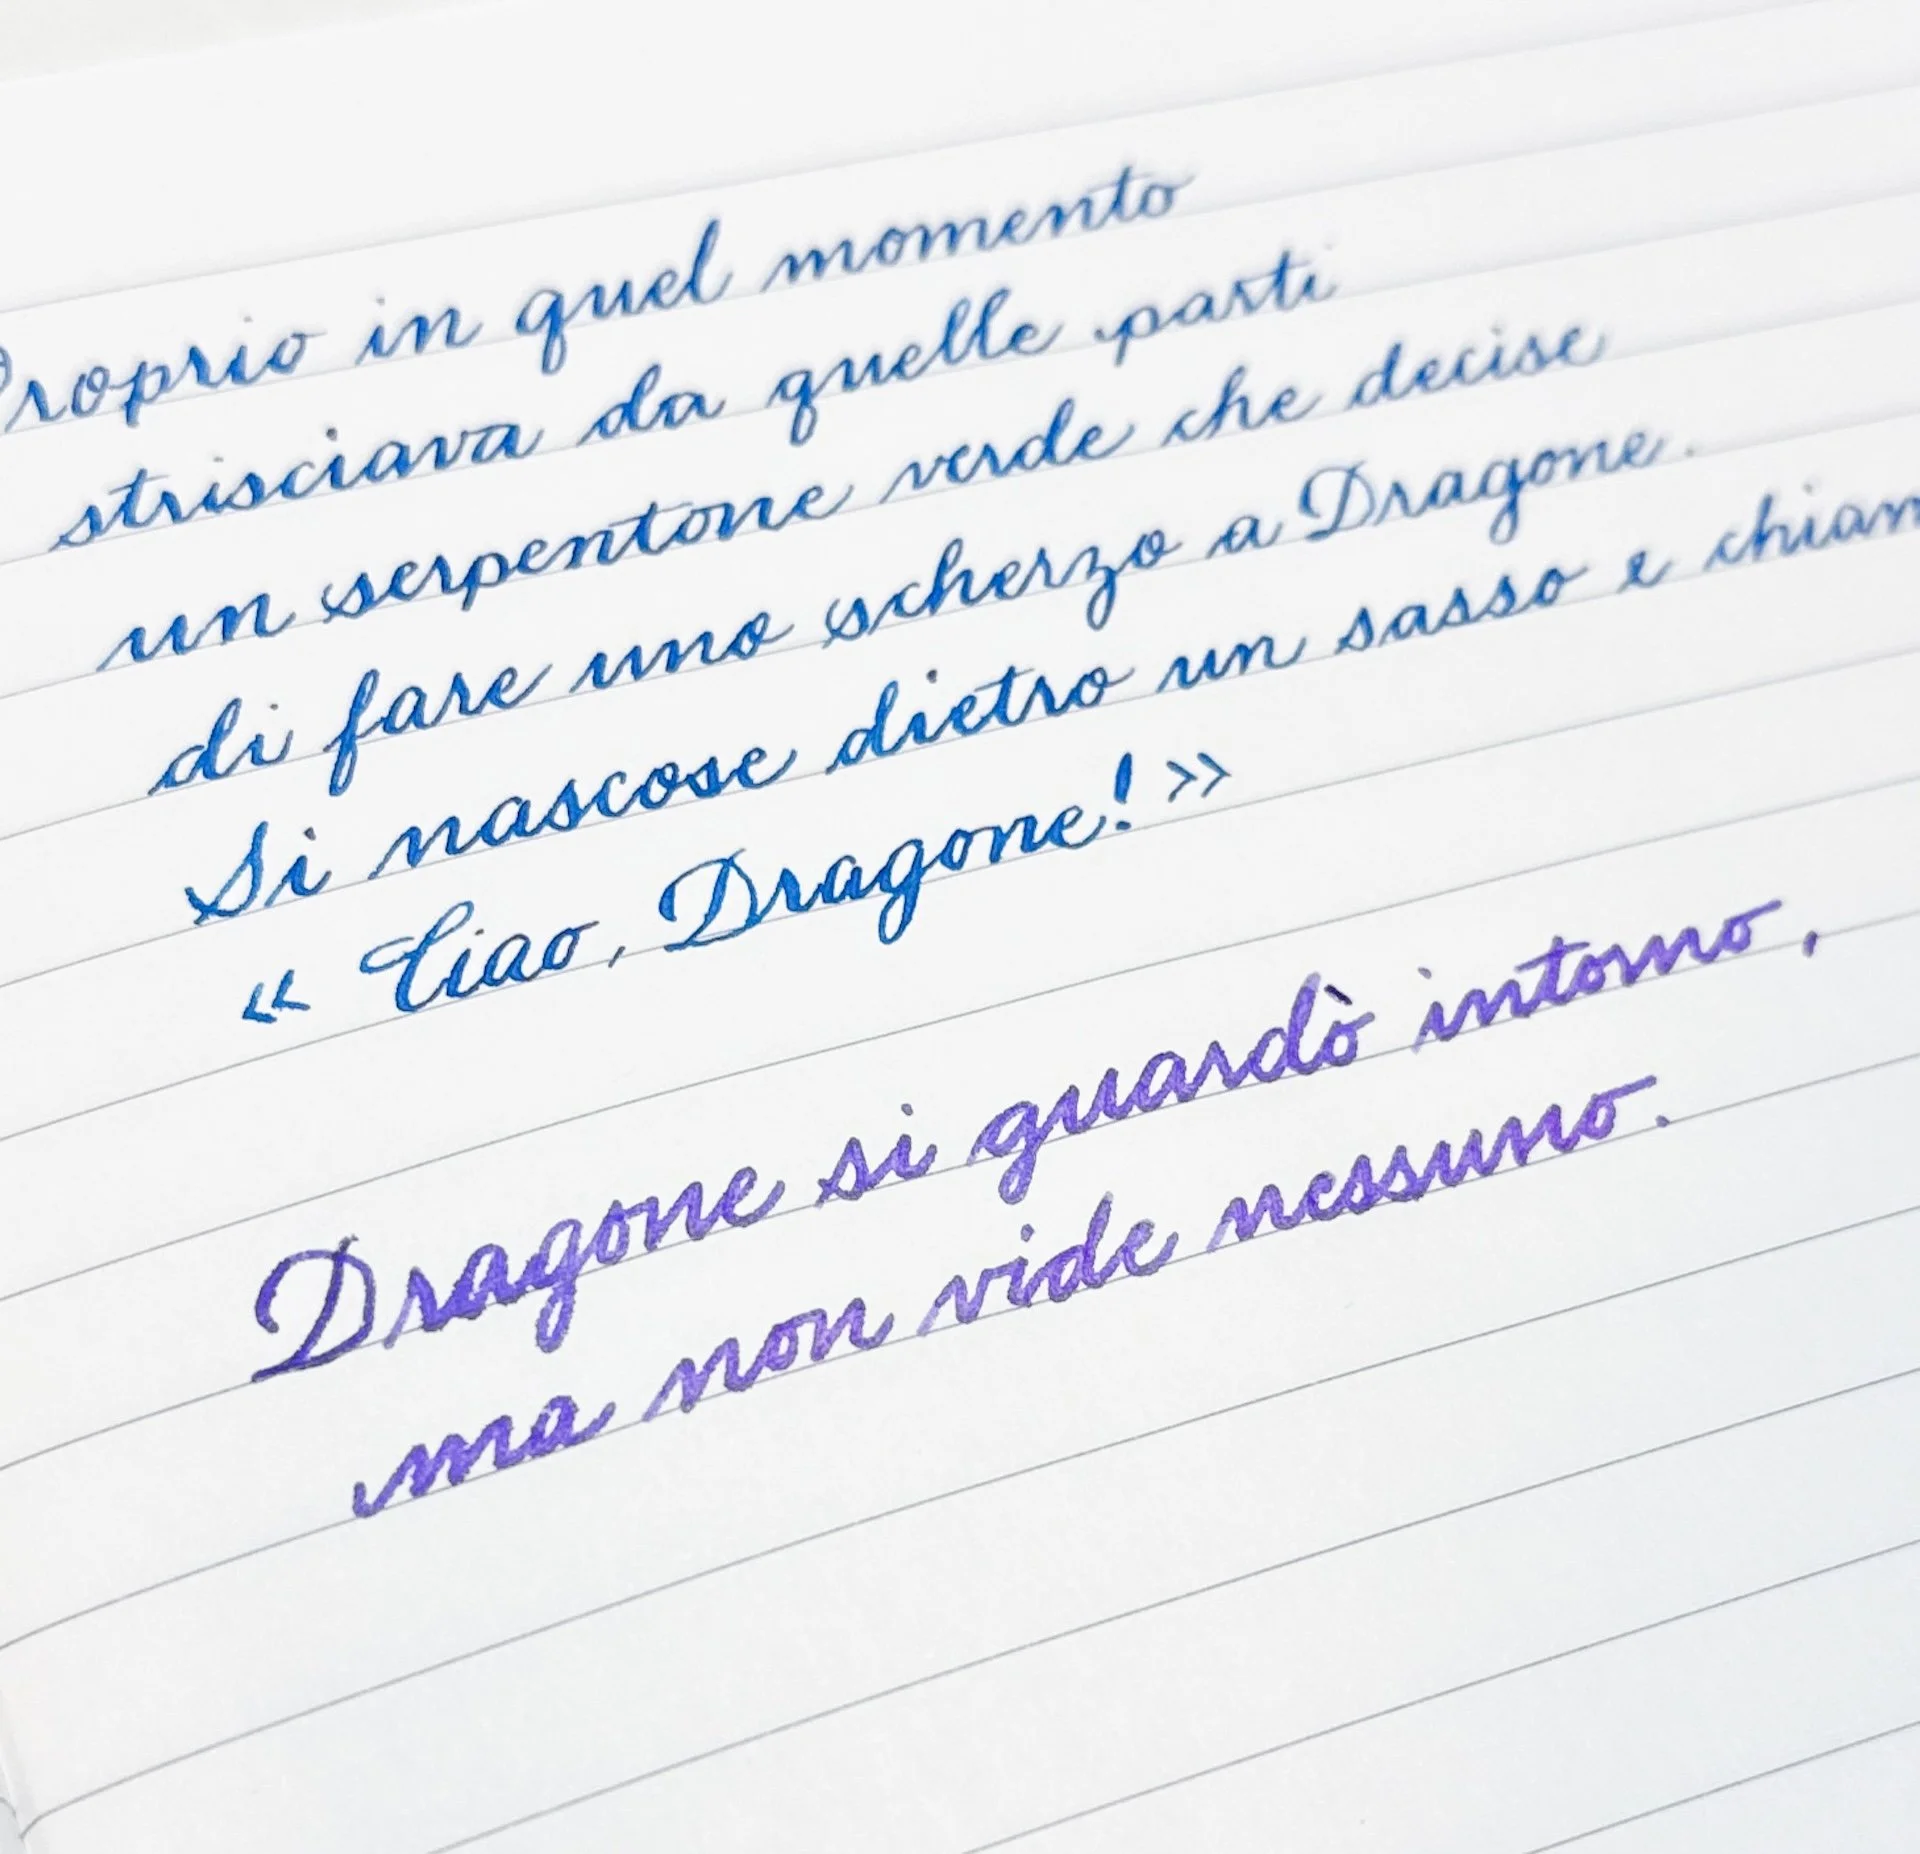 Proprio in quel momento
strisciava da quelle parti
un serpentone verde che decise
di fare uno scherzo a Dragone.
Si nascose dietro un sasso e chiam
« Ciao, Dragone! »
Dragone si guardò intorno,
ma non vide nessuno.